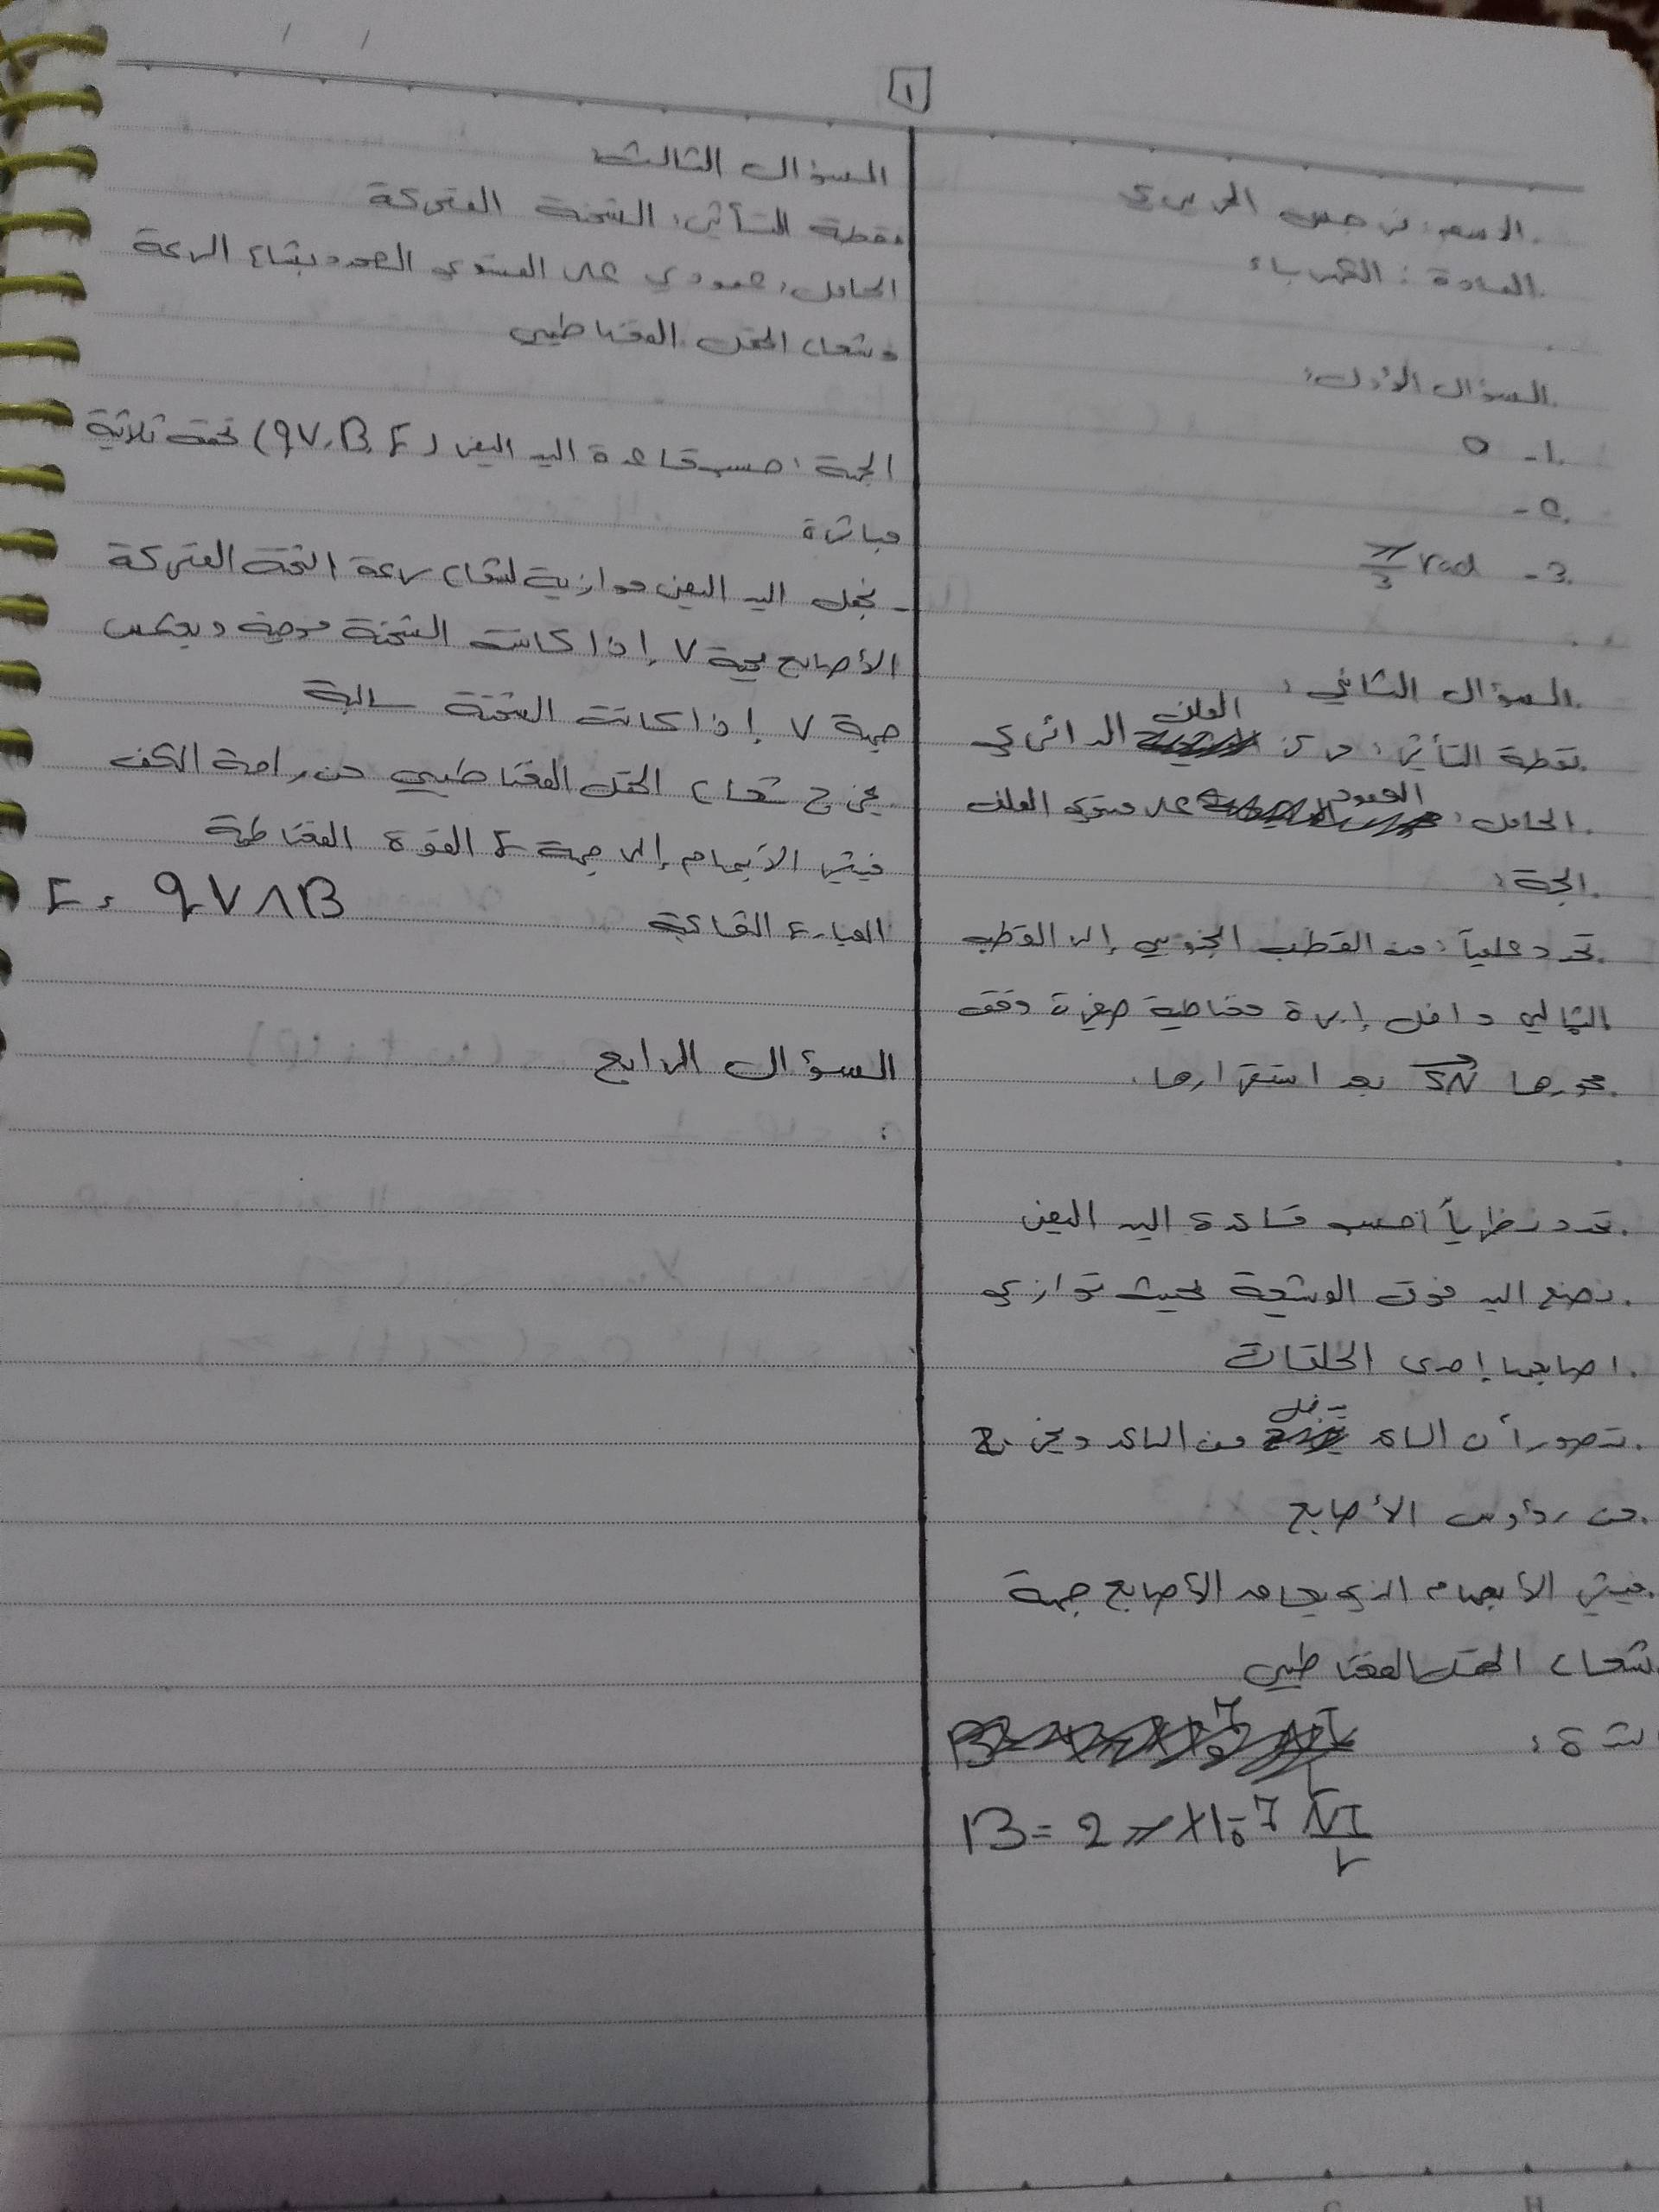 ١
الاسم: نرجس الحريري
المادة: الكهرباء
السؤال الأول:
1- 0
2-
3- π/3 rad
السؤال الثاني:
نقطة التأثير: مركز الملف الدائري
الحامل: العمود على مستوي الملف
الجهة:
تحدد عملياً: من القطب الجنوبي إلى القطب
الشمالي داخل إبرة مغناطيسية صغيرة وفق
محورها SN بعد استقرارها.
تحدد نظرياً: حسب قاعدة اليد اليمنى
نضع اليد فوق الوشيعة بحيث توازي
اصابعها إحدى الحلقات
نتصور أن التيار يدخل من الساعد ويخرج
من رؤوس الأصابع
فيشير الأبهام الذي يعامد الأصابع جهة
شعاع الحقل المغناطيسي
الشدة:
B = 2π×10⁻⁷ NI/r
السؤال الثالث:
نقطة التأثير: الشحنة المتحركة
الحامل: عمودي على المستوي المحدد بشعاع السرعة
وشعاع الحقل المغناطيسي
الجهة: حسب قاعدة اليد اليمنى (qV, B, F) تحقق ثلاثية
مباشرة
- نجعل اليد اليمنى موازية لشعاع سرعة الشحنة المتحركة
الأصابع بجهة V إذا كانت الشحنة موجبة وبعكس
جهة V إذا كانت الشحنة سالبة
يخرج شعاع الحقل المغناطيسي من راحة الكف
فيشير الأبهام إلى جهة F القوة المغناطيسية
العبارة الشعاعية F = qV∧B
السؤال الرابع
: